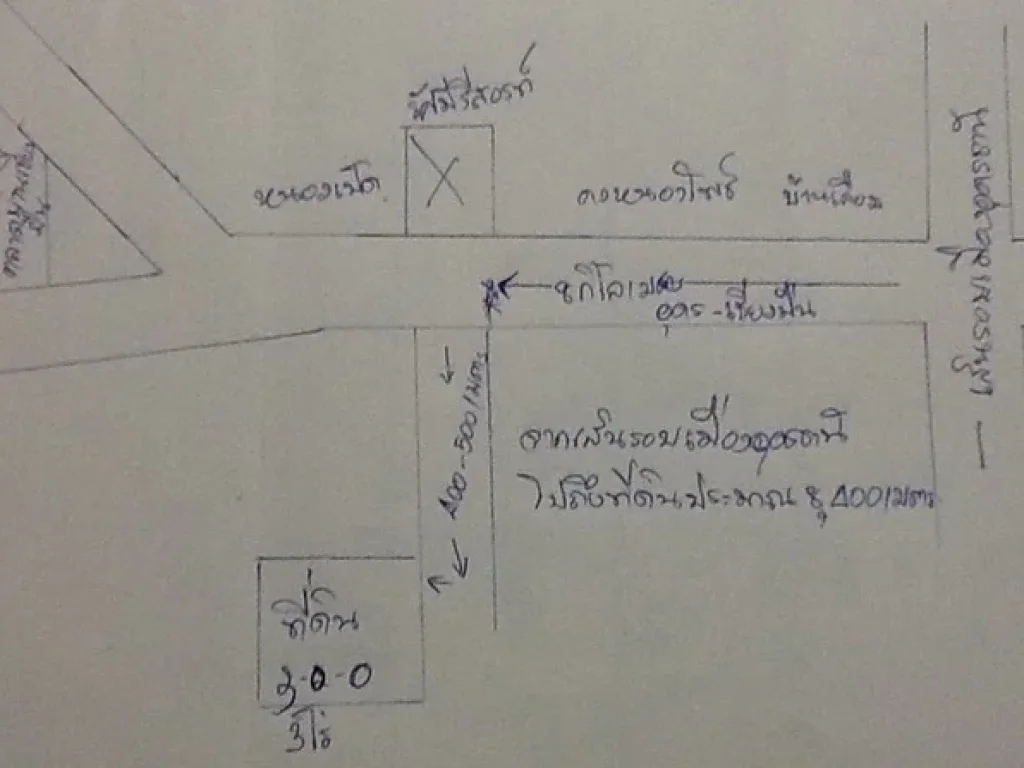 รัศมีรีสอร์ท
หนองเป็ด
ดงหนองโพธิ์ บ้านเลื่อม
8 กิโลเมตร
อุดร - เชียงพิน
400-500 เมตร
จากเส้นรอบเมืองอุดรธานี
ไปถึงที่ดินประมาณ 8,400 เมตร
ที่ดิน
3-0-0
3ไร่